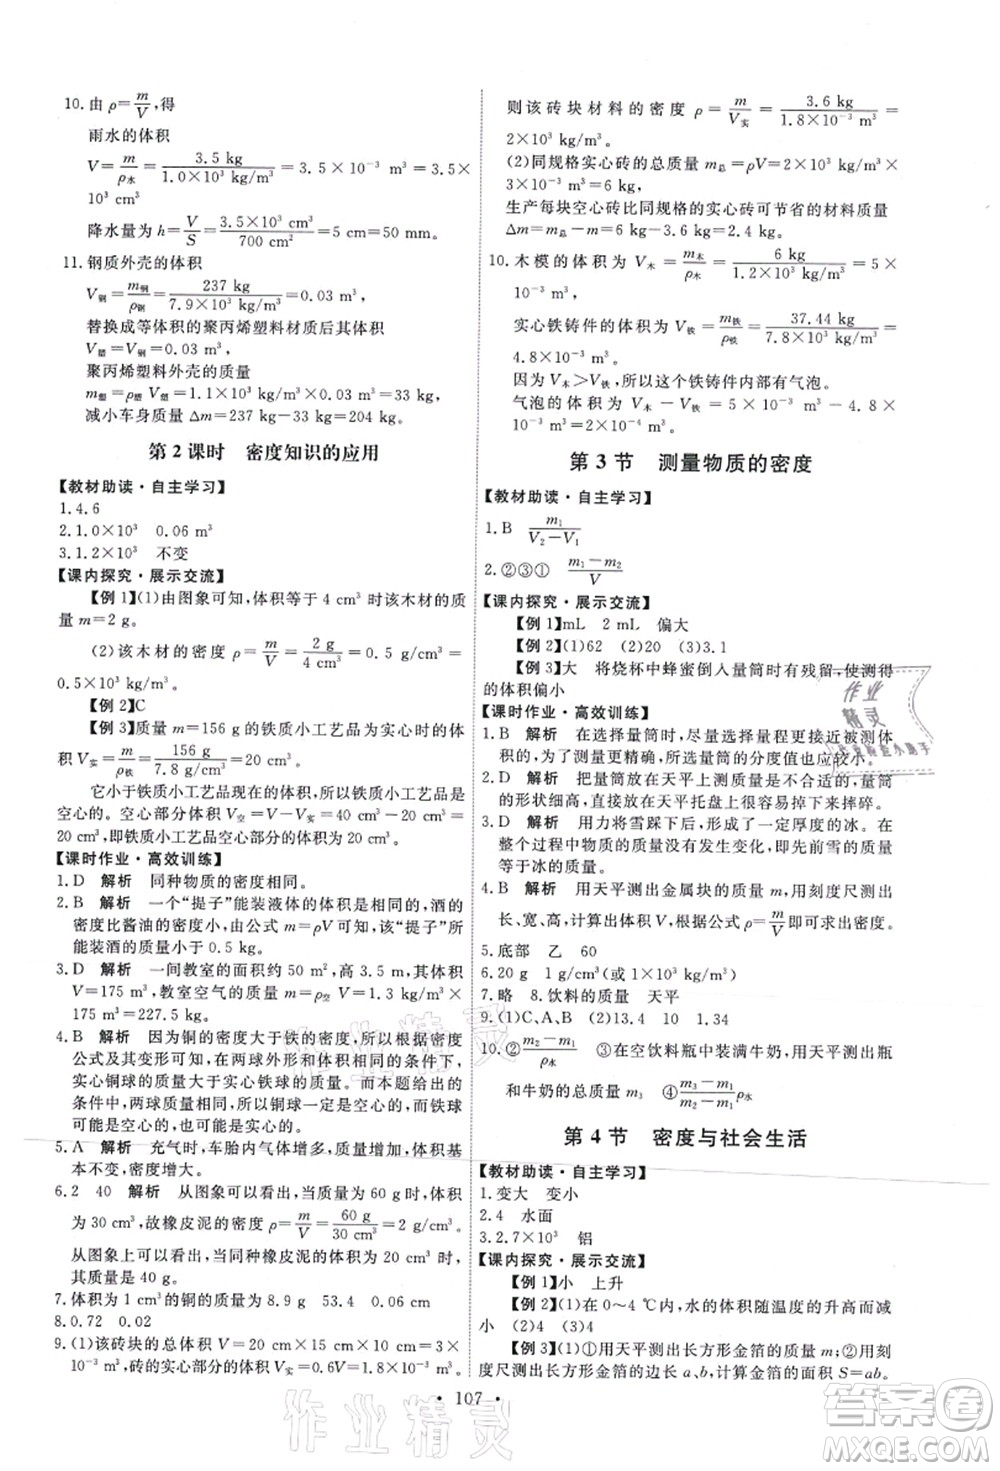 10. 由 ρ=m/V,得
雨水的体积
V=m/ρ水=3.5 kg/1.0×10³ kg/m³=3.5×10⁻³ m³=3.5×
10³ cm³
降水量为 h=V/S=3.5×10³ cm³/700 cm²=5 cm=50 mm。
11. 钢质外壳的体积
V钢=m钢/ρ钢=237 kg/7.9×10³ kg/m³=0.03 m³
替换成等体积的聚丙烯塑料材质后其体积
V塑=V钢=0.03 m³
聚丙烯塑料外壳的质量
m塑=ρ塑 V塑=1.1×10³ kg/m³×0.03 m³=33 kg
减小车身质量 Δm=237 kg-33 kg=204 kg。
第 2 课时 密度知识的应用
【教材助读·自主学习】
1. 4.6
2. 1.0×10³ 0.06 m³
3. 1.2×10³ 不变
【课内探究·展示交流】
【例 1】(1)由图象可知,体积等于 4 cm³ 时该木材的质
量 m=2 g。
(2)该木材的密度 ρ=m/V=2 g/4 cm³=0.5 g/cm³=
0.5×10³ kg/m³。
【例 2】C
【例 3】质量 m=156 g 的铁质小工艺品为实心时的体
积 V实=m/ρ=156 g/7.8 g/cm³=20 cm³。
它小于铁质小工艺品现在的体积,所以它是空心的。
空心部分体积 V空=V-V实=40 cm³-20 cm³=
20 cm³,即铁质小工艺品空心部分的体积为 20 cm³。
【课时作业·高效训练】
1. D 解析 同种物质的密度相同。
2. B 解析 一个“提子”能装液体的体积是相同的,酒的
密度比酱油的密度小,由公式 m=ρV 可知,该“提子”所
能装酒的质量小于 0.5 kg。
3. D 解析 一间教室的面积约 50 m²,高 3.5 m,其体积
V=175 m³,教室空气的质量 m=ρ空V=1.3 kg/m³×
175 m³=227.5 kg。
4. B 解析 因为铜的密度大于铁的密度,所以根据密度
公式及其变形可知,在两球外形和体积相同的条件下,
实心铜球的质量大于实心铁球的质量。而本题给出的
条件中,两球质量相同,所以铜球一定是空心的,而铁球
可能是空心的,也可能是实心的。
5. A 解析 充气时,车胎内气体增多,质量增大,体积基
本不变,密度增大。
6. 2 40 解析 从图象可以看出,当质量为 60 g 时,体积
为 30 cm³,故橡皮泥的密度 ρ=m/V=60 g/30 cm³=2 g/cm³;
从图象上可以看出,当同种橡皮泥的体积为 20 cm³ 时,
其质量是 40 g。
7. 体积为 1 cm³ 的铜的质量为 8.9 g 53.4 0.06
8. 0.72 0.01
9. (1)该砖块的总体积 V=20 cm×15 cm×10 cm=3×
10⁻³ m³,砖的实心部分的体积 V实=0.6V=1.8×10⁻³ m³,
则该砖块材料的密度 ρ=m/V实=3.6 kg/1.8×10⁻³ m³=
2×10³ kg/m³。
(2)同规格实心砖的总质量 m总=ρV=2×10³ kg/m³×
3×10⁻³ m³=6 kg,
生产每块空心砖比同规格的实心砖可节省的材料质量
Δm=m总-m=6 kg-3.6 kg=2.4 kg。
10. 木模的体积为 V木=m木/ρ木=6 kg/1.2×10³ kg/m³=5×
10⁻³ m³,
实心铁铸件的体积为 V铁=m铁/ρ铁=37.44 kg/7.8×10³ kg/m³=
4.8×10⁻³ m³。
因为 V木>V铁,所以这个铁铸件内部有气泡。
气泡的体积为 V木-V铁=5×10⁻³ m³-4.8×10⁻³ m³=
2×10⁻⁴ m³。
第 3 节 测量物质的密度
【教材助读·自主学习】
1. B m₁/V₂-V₁
2. ②③① m₁-m₂/V
【课内探究·展示交流】
【例 1】mL 2 mL 偏大
【例 2】(1)62 (2)20 (3)3.1
【例 3】大 将烧杯中蜂蜜倒入量筒时有残留,使测得
的体积偏小
【课时作业·高效训练】
1. B 解析 在选择量筒时,尽量选择量程大于所测体
积的。为了测量更精确,量筒的分度值应较小。
2. D 解析 把量筒放在天平上测质量是不合适的,量筒
的形状细而高,容易在从天平托盘上取下来时摔碎。
3. D 解析 用力将雪踩下去,变成了有一定厚度的冰。在
整个过程中物质的质量没有发生变化,即雪的质量
等于冰的质量。
4. B 解析 用天平测出金属块的质量 m,用刻度尺测出
长、宽、高,计算出体积 V,根据公式 ρ=m/V即可求出密度。
5. 底部 乙 60
6. 20 g 1 g/cm³(或 1×10³ kg/m³)
7. 略 8. 饮料的质量 天平
9. (1)C、A、B (2)13.4 10 1.34
10. ②m₂-m₁/ρ水 ③在空饮料瓶中装满牛奶,用天平测出瓶
和牛奶的总质量 m₃ ④m₃-m₁/m₂-m₁ρ水
第 4 节 密度与社会生活
【教材助读·自主学习】
1. 变大 变小
2. 4 水面
3. 2.7×10³ 铝
【课内探究·展示交流】
【例 1】小 上升
【例 2】(1)在 0～4 ℃内,水的体积随温度的升高而减
小 (2)4 (3)4
【例 3】(1)①用天平测出长方形金箔的质量 m。②用刻
度尺测出长方形金箔的边长 a、b,计算金箔的面积 S=ab。
• 107 •
作业精灵
作业精灵
作业
精灵
答案圈
MXQE.COM